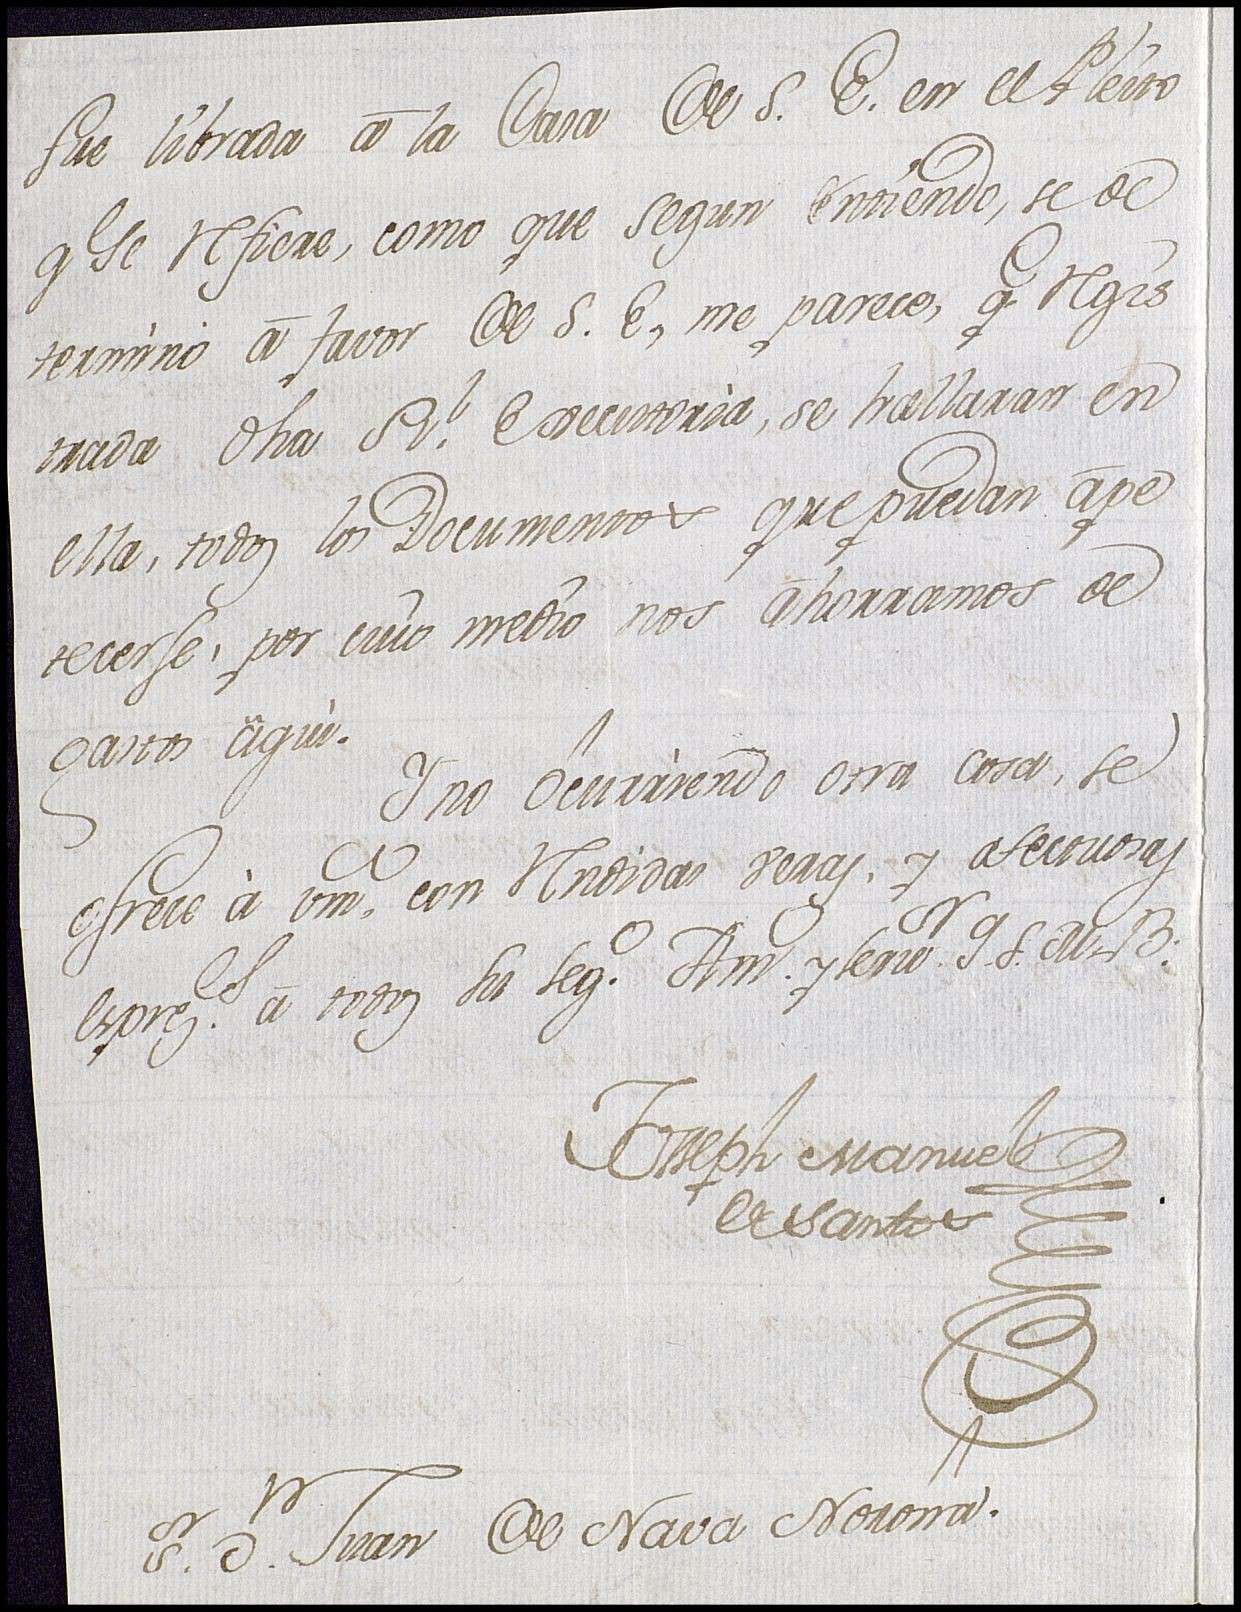 fue librada â la Casa de S. E. en el Pleito
q.e se Refiere, como que segun entiendo, se de
termino â favor de S. E, me parece, q.e Regis
trada dha R.l Executoria, se hallaran en
ella, todos los Documentos que puedan ape
tecerse, por cuio medio nos ahorramos de
gastos aqui.
Y no ocurriendo otra cosa, se
ofrece à vm. con Rendidas veras, y afectuosas
expres.s â todos su seg.o Am.o y serv.r q. S. M. B.
Joseph Manuel
de Santos
S.r D.n Juan de Nava Norona.